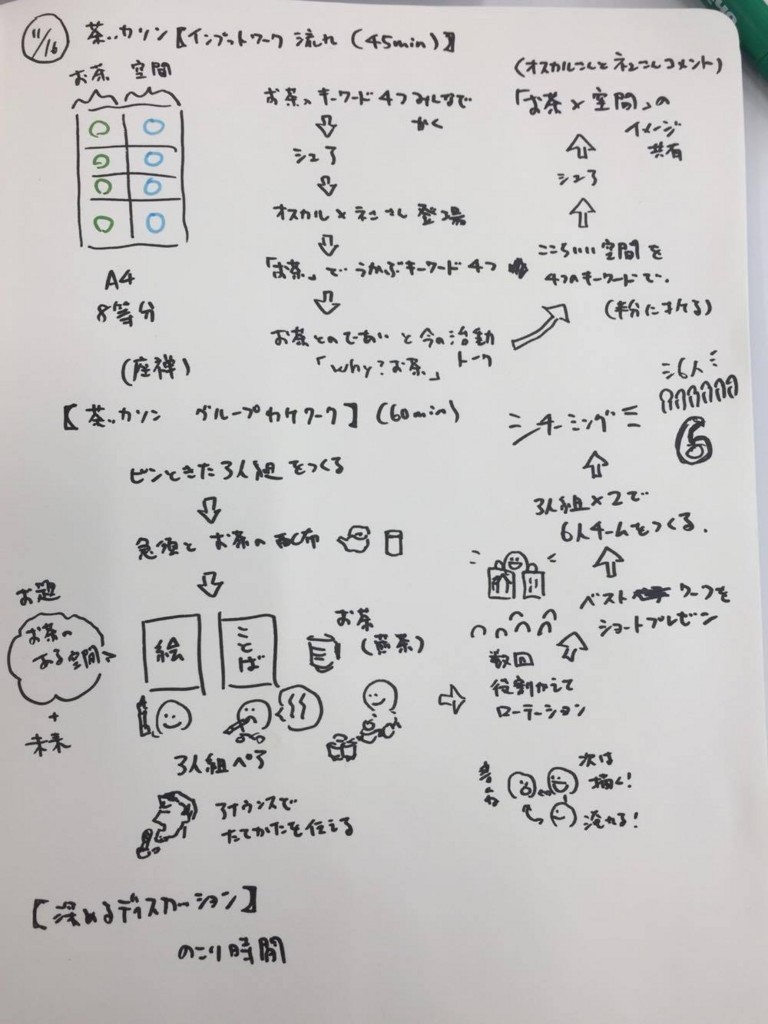 11/16
茶ッカソン【インプットワーク 流れ (45min)】
お茶 空間
A4
8等分
お茶のキーワード4つみんなで
かく
シェア
オスカル×ネエさん 登場
「お茶」でうかぶキーワード4つ
お茶とのであいと今の活動
「why?お茶」トーク
こころいい空間を
4つのキーワードで.
(半分にわける)
シェア
「お茶×空間」の
イメージ
共有
(座禅)
【茶ッカソン グループわけワーク】(60min)
ピンときた3人組をつくる
急須とお茶の配布
お題
お茶の
ある空間
+
未来
絵
ことば
お茶
(煎茶)
3人組ペア
アナウンスで
たてかたを伝える
数回
役割かえて
ローテーション
次は
描く!
淹れる!
ベスト ワークを
ショートプレゼン
3人組×2で
6人チームをつくる.
チーミング
6人
6
【深めるディスカッション】
のこり時間